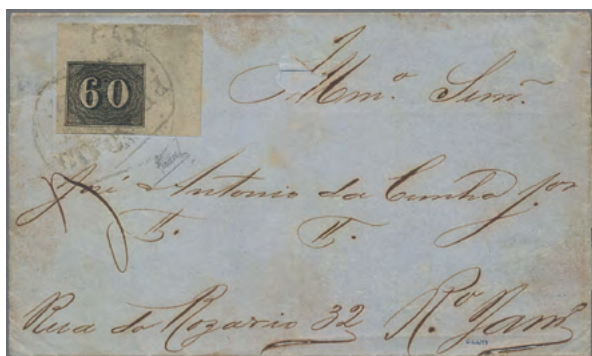 60
Illmo. Senr.
José Antonio da Cunha Jor
T. T.
Rua do Rozario 32 R.o Janro